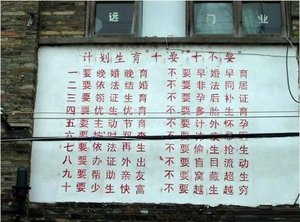 远 门业
计划生育"十要""十不要"
一要晚婚晚育 不要早婚早育
二要依法结婚 不要非法同居
三要领证生育 不要孕后补证
四要优生优育 不要多胎生育
五要主动节育 不要计外怀孕
六要按时
七要依法再生 不要偷生抢生
八要办证外出 不要盲目流动
九要帮助亲友 不要窝藏超生
十要少生快富 不要越生越穷